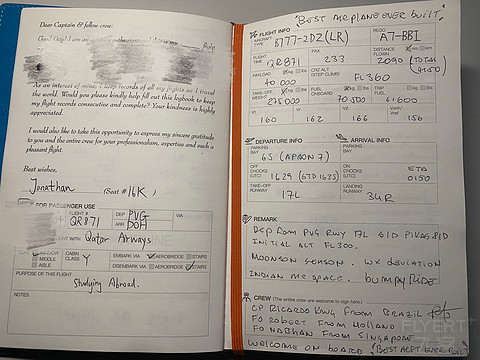 Dear Captain & fellow crew:
Good Day! I am an
flight
As an interest of mine, I keep records of all my flights as I travel
the world. Would you please kindly help fill out this logbook to keep
my flight records consecutive and complete? Your kindness is highly
appreciated.
I would also like to take this opportunity to express my sincere gratitude
to you and the entire crew for your professionalism, expertise and such a
pleasant flight.
Best wishes,
Jonathan (Seat #16K)
FOR PASSENGER USE
FLIGHT # QR871
DEP PVG
ARR DOH
VIA
FLIGHT WITH Qatar Airways
WINDOW
MIDDLE
AISLE
CABIN CLASS Y
EMBARK VIA AEROBRIDGE STAIRS
DISEMBARK VIA AEROBRIDGE STAIRS
PURPOSE OF FLIGHT
Studying Abroad.
NOTES
"BEST AEROPLANE EVER BUILT"
FLIGHT INFO
AIRCRAFT TYPE B777-2DZ(LR)
REGO A7-BBI
FLIGHT QR871
PAX 233
DISTANCE FLOWN nm km
PAYLOAD kg lbs
40.000
CRZ ALT STEP CLIMB FL360
TAKE-OFF WEIGHT kg lbs
275000
FUEL ONBOARD kg lbs
70.500
TRIP FUEL
61600
V1 160
VR 162
V2 166
Vapp/Vref 156
DEPARTURE INFO
ARRIVAL INFO
PARKING BAY 65 (APRON 7)
PARKING BAY
OFF CHOCKS (UTC) 1629 (STD 1625)
ON CHOCKS (UTC) ETA 0150
TAKE-OFF RUNWAY 17L
LANDING RUNWAY 34R
REMARK
DEP FROM PVG RWY 17L SID PIKAS
INITIAL ALT FL300.
MOONSON SEASON. WX DEVIATION
INDIAN AIRSPACE. BUMPY RIDE
CREW (The entire crew are welcome to sign here.)
CP RICARDO FROM BRAZIL
FO ROBERT FROM HOLLAND
FO FROM SINGAPORE
WELCOME ON BOARD (BEST ACFT EVER BUILT)
FLYERT